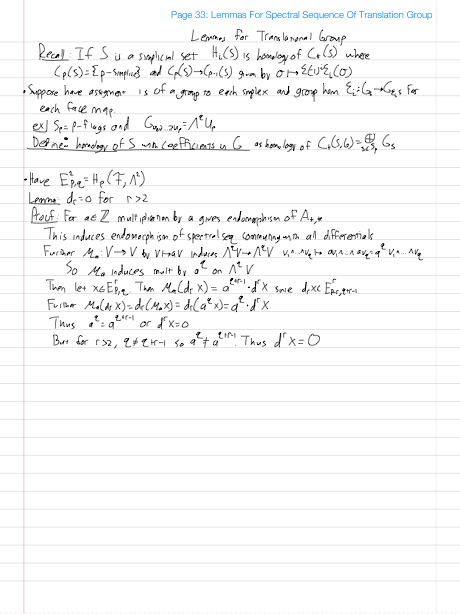 Page 33: Lemmas For Spectral Sequence Of Translation Group
Lemmas for Translational Group
Recall: If S is a simplicial set Hᵢ(S) is homology of C₊(S) where
Cₚ(S)=ℤ{p-simplices} and Cₚ(S)→Cₚ₋₁(S) given by σ↦Σ(-1)ⁱεᵢ(σ)
• Suppose have assignment is of a group to each simplex and group hom εᵢ:Gₛ→G_{εᵢs} for
each face map.
ex) Sₚ=p-flags and G_{U₀⊃...⊃Uₚ}=Λ^q Uₚ
Define: homology of S with coefficients in G as homology of C₊(S,G)=⊕_{s∈Sₚ} Gₛ
• Have E²_{p,q}=Hₚ(F,Λ^q)
Lemma: dᵣ=0 for r≥2
Proof: For a∈ℤ multiplication by a gives endomorphism of A_{+,*}
This induces endomorphism of spectral seq commuting with all differentials
Further Mₐ:V→V by v↦av induces Λ^qV→Λ^qV v₁∧...∧v_q↦av₁∧...∧av_q=a^q v₁∧...∧v_q
So Mₐ induces mult by a^q on Λ^q V
Then let x∈E^r_{p,q}. Then Mₐ(dᵣ x) = a^{q+r-1}·d^r x since dᵣx∈E^r_{p-r,q+r-1}
Further Mₐ(dᵣ x)=dᵣ(Mₐ x)=dᵣ(a^q x)=a^q·d^r x
Thus a^q=a^{q+r-1} or d^r x=0
But for r≥2, q≠q+r-1 so a^q≠a^{q+r-1}. Thus d^r x=0